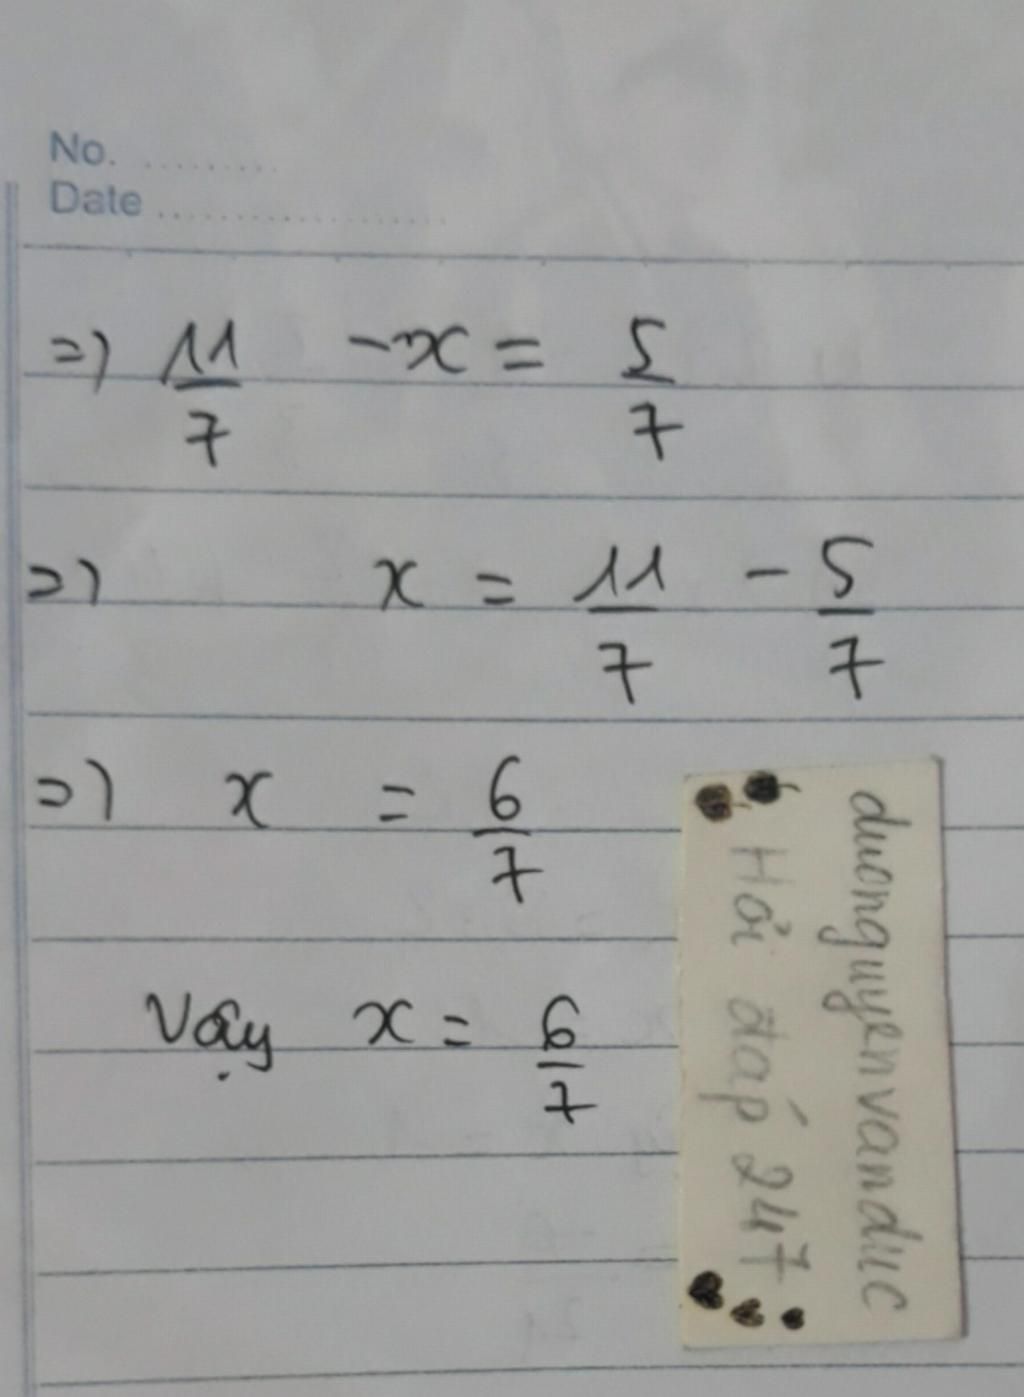 No. ..........
Date ...................
=) 11/7 - x = 5/7
=) x = 11/7 - 5/7
=) x = 6/7
Vậy x = 6/7
duonguyenvanduc
Hỏi đáp 247